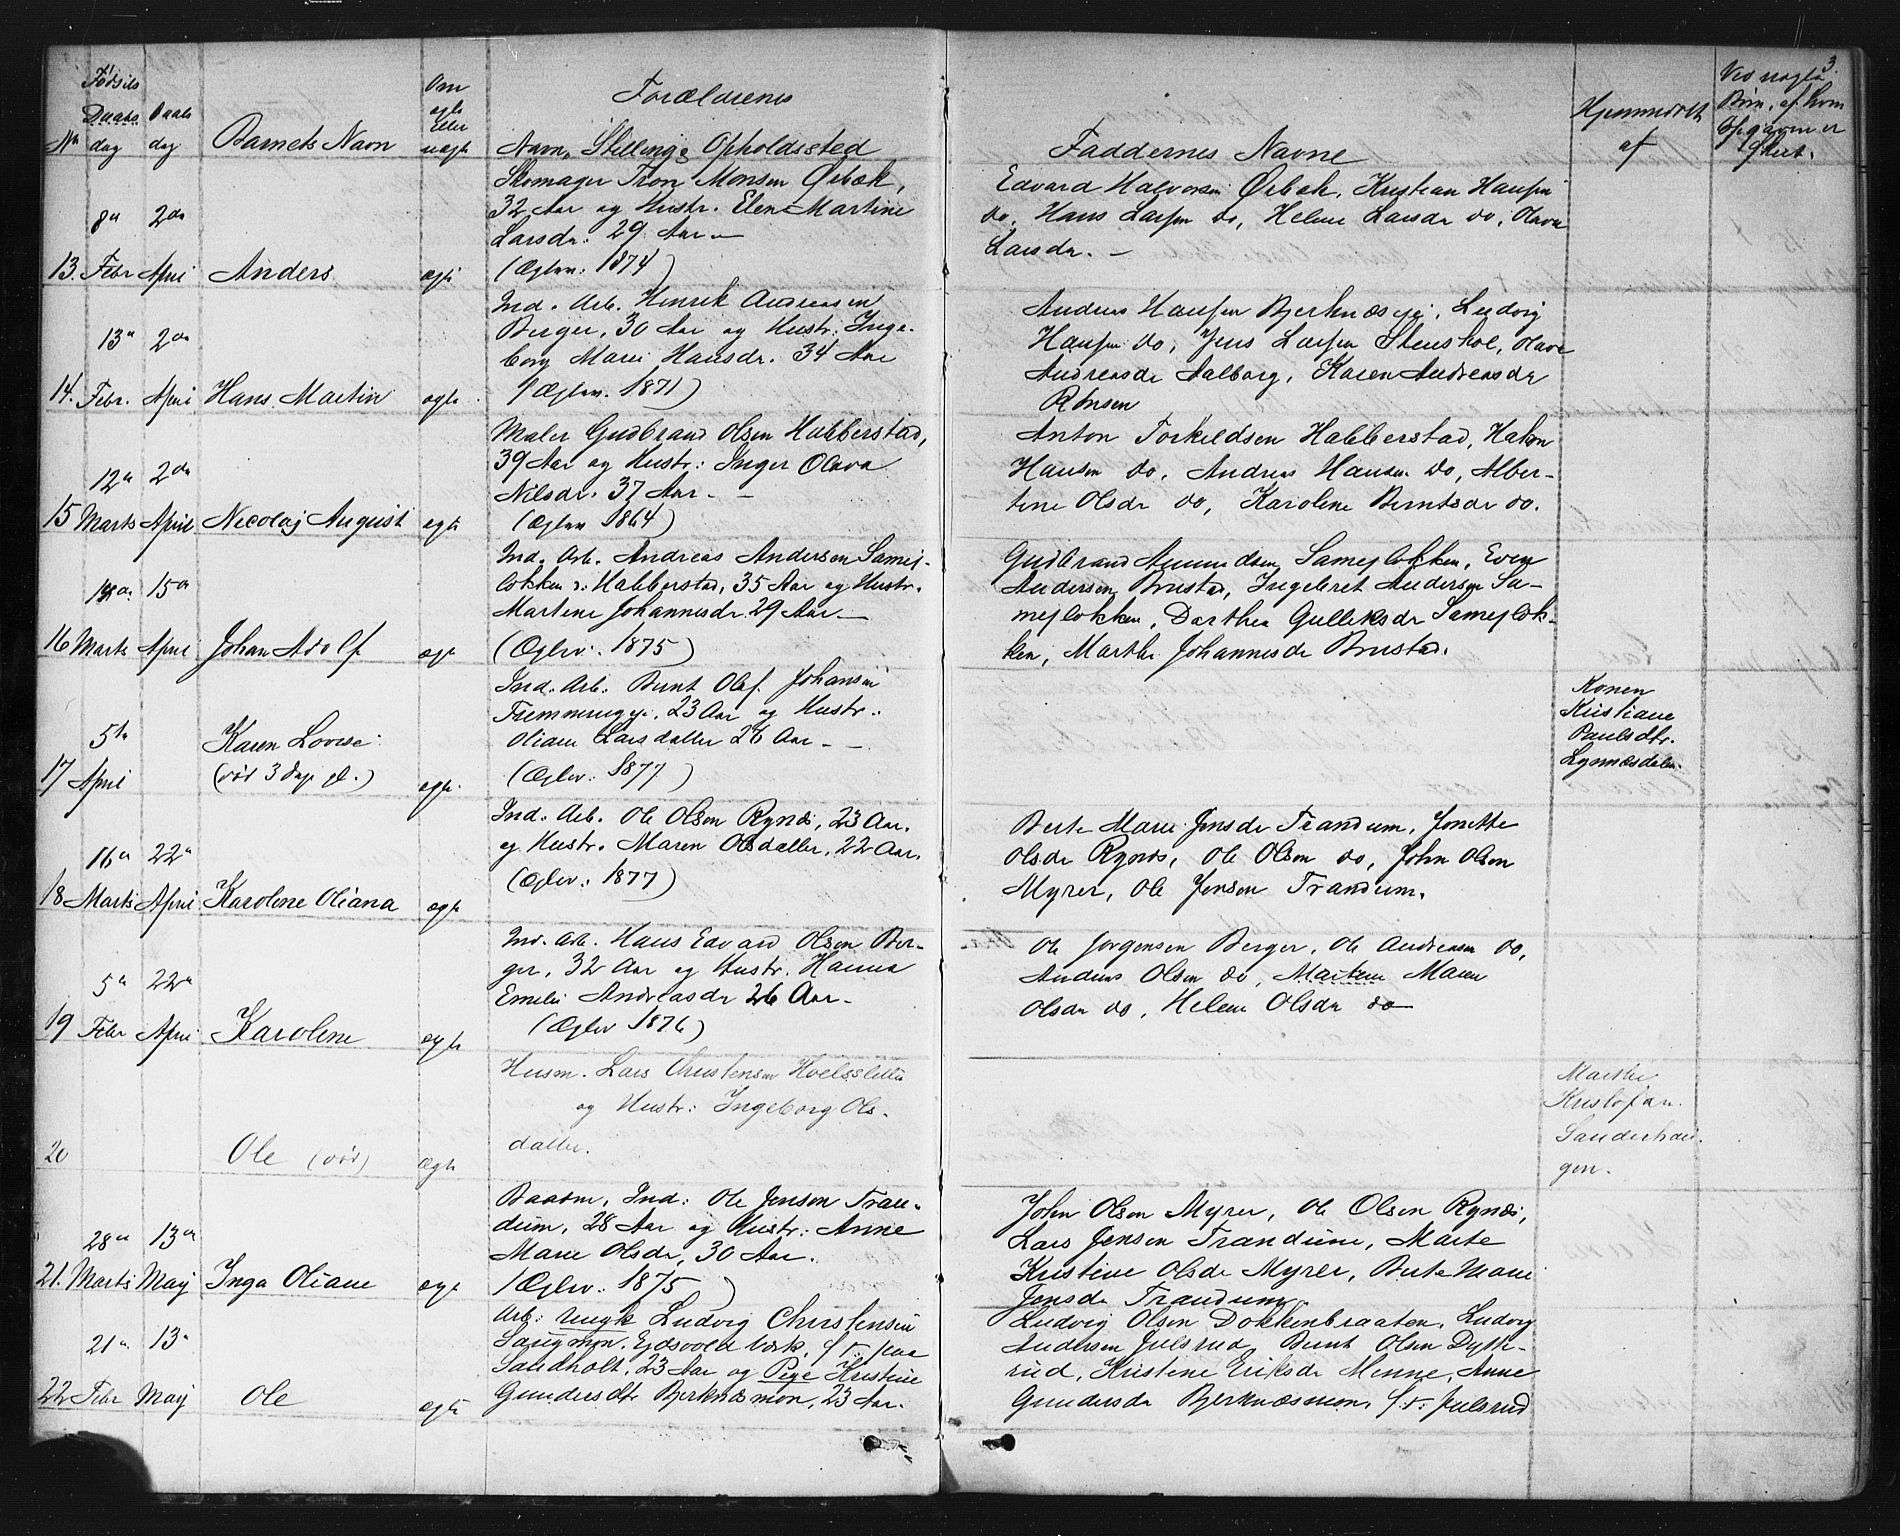 3.
Fødsels Daabs Barnets Navn Om Forældrenes Hjemmedøbt Ved uægte
Nr dag dag ægte eller uægte Navn, Stilling & Opholdssted Faddernes Navne af Børn, af hvem Opgaven er skeet.
Skomager Tron Monsen Ørbæk,
8de 2den 32 Aar og Hustr. Elen Martine
Larsdr. 29 Aar —
13. Febr April Anders ægte (Ægtev. 1874)
Edvard Halvorsen Ørbæk, Kristian Hansen
do, Hans Larsen do, Helene Larsdr do, Olava
Larsdr. —
Ind. Arb. Henrik Andreasen
13de 2den Berger, 30 Aar og Hustr. Inge-
borg Marie Hansdr. 34 Aar
14. Febr. April Hans Martin ægte (Ægtev. 1871)
Andreas Hansen Bjerknæseje, Ludvig
Hansen do, Jens Larsen Stenskol, Olave
Andreasdr Aalborg, Karen Andreasdr
Rønsen
Maler Gudbrand Olsen Habberstad,
12te 2den 39 Aar og Hustr: Inger Olava
Nilsdr. 37 Aar. —
15 Marts April Nicolaj August ægte (Ægtev 1864)
Anton Torkildsen Habberstad, Hakon
Hansen do, Andreas Hansen do, Alber-
tine Olsdr do, Karoline Berntsdr do.
Ind. Arb. Andreas Andersen Samej-
15de løkken v. Habberstad, 35 Aar og Hustr.
Martine Johannesdr 29 Aar —
16 Marts April Johan Adolf ægte (Ægtev. 1875)
Gudbrand Amundsen Samejløkken, Even
Andersen Brustad, Ingebret Andersen Sa-
mejløkken, Dorthea Gulliksdr Samejløk-
ken, Marthe Johannesdr Brustad.
Ind. Arb. Bernt Olaf Johansen
Tremmingeje, 23 Aar og Hustr.
5te Karen Lovise Oliane Larsdatter 26 Aar. —
17 April (død 3 Dage gl.) ægte. (Ægtev. 1877)
Konen
Kristiane
Paulsdtr.
Lynnæsdalen.
Ind. Arb. Ole Olsen Rynæs, 23 Aar.
16de 22de og Hustr. Maren Olsdatter, 22 Aar.
18 Marts April Karoline Oliana ægte (Ægtev. 1877)
Berte Marie Jensdr Trandum, Jonette
Olsdr Rynæs, Ole Olsen do, John Olsen
Myrer, Ole Jensen Trandum.
Ind. Arb. Hans Edvard Olsen Ber-
5te 22de ger, 32 Aar og Hustr. Hanna
Emelie Andreasdr 26 Aar.
19 Febr April Karoline ægte (Ægtev 1876)
Ole Jørgensen Berger, Ole Andreasen do,
Anders Olsen do, Martine Maren
Olsdr do, Helene Olsdr do
Husm. Lars Christensen Hoelssletten
og Hustr: Ingeborg Ols-
20 Ole (død) ægte datter.
Marthe
Kristofan.
Sanderhau-
gen.
Baadsm. Ind: Ole Jensen Tran-
28de 13de dum, 28 Aar og Hustr: Anne
Marie Olsdr, 30 Aar.
21. Marts Maj Inga Oliane ægte (Ægtev. 1875)
John Olsen Myrer, Ole Olsen Rynæs,
Lars Jensen Trandum, Marte
Kristine Olsdr Myrer, Berte Marie
Jensdr Trandum
Arb: Ungk. Ludvig Christensen
21de 13de Saugmon. Ejdsvold Værk, f. v. paa
Sandholt, 23 Aar og Pige Kristine
22 Febr Maj Ole ægte Gundersdtr Bjerknæsmon, 23 Aar.
Ludvig Olsen Dokkenbraaten, Ludvig
Andersen Julsrud, Bernt Olsen Dyst-
rud, Kristine Eriksdr Menne, Anne
Gundersdr Bjerknæsmon, f. v. Julsrud